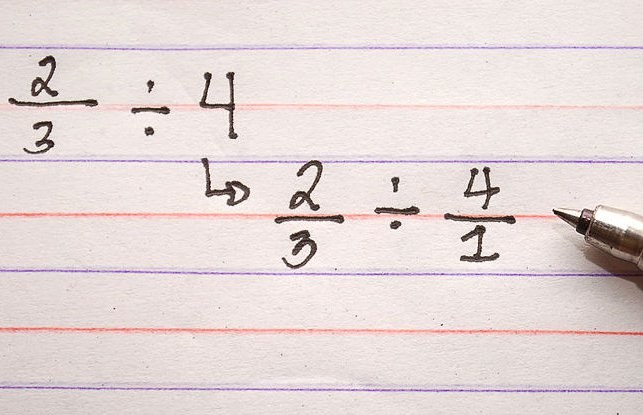 2/3 ÷ 4
↳ 2/3 ÷ 4/1